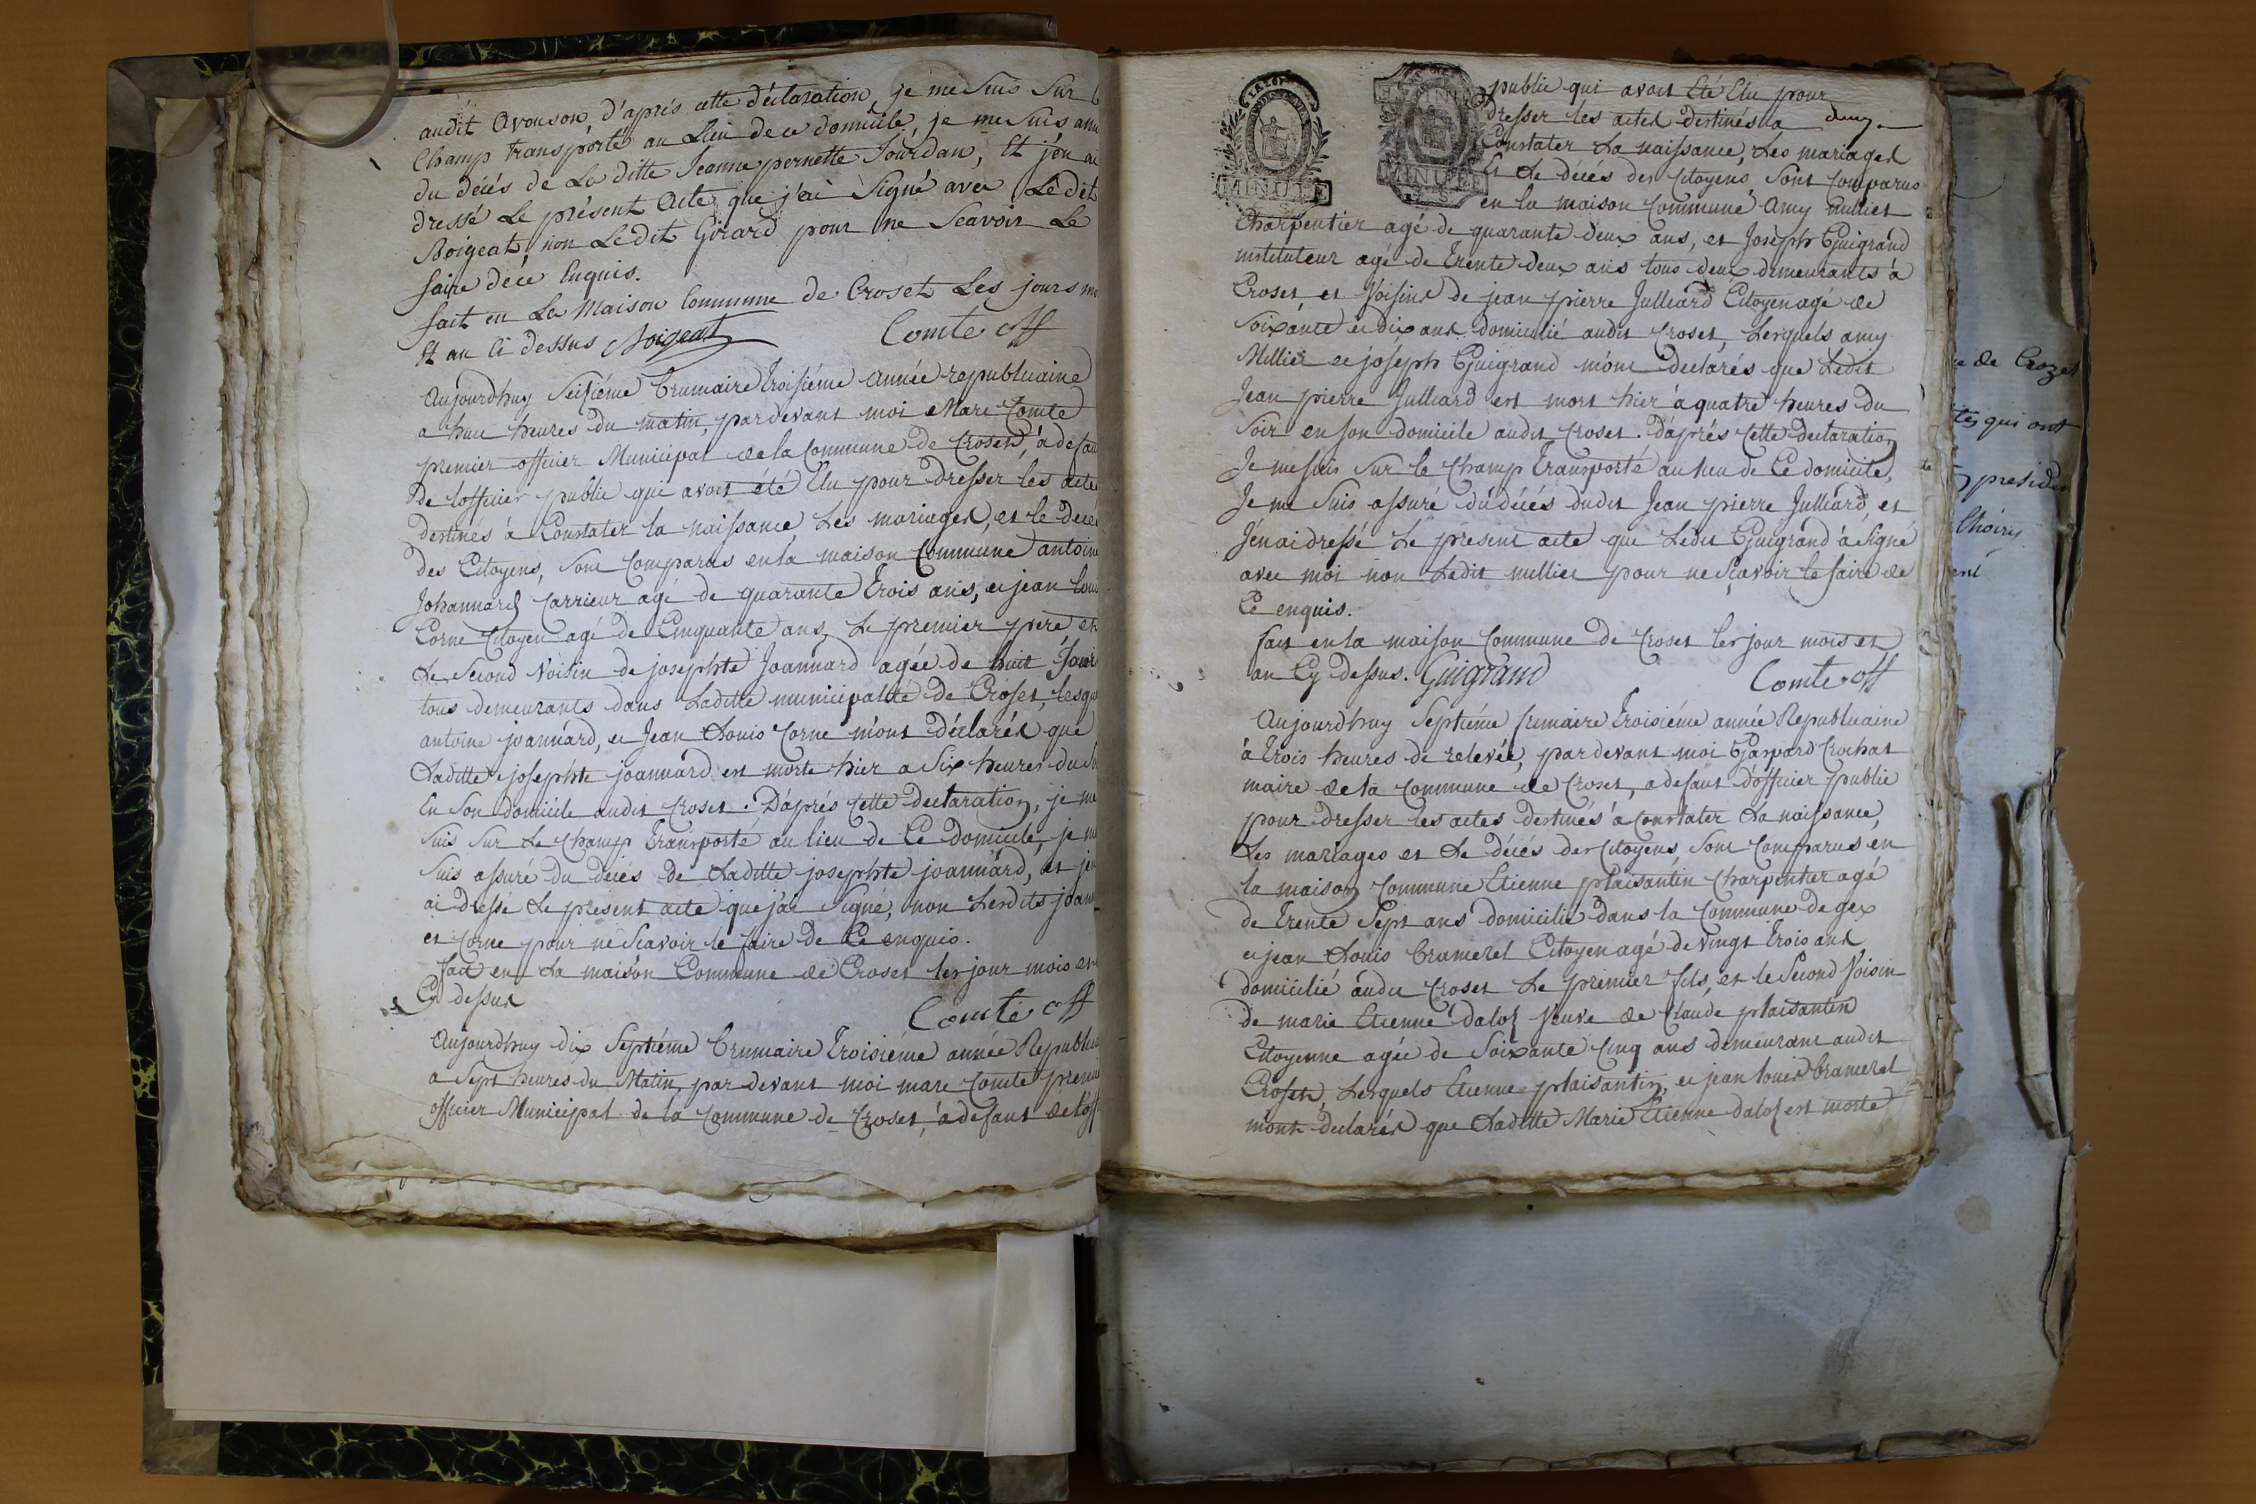 audit Avouson, d'aprés cette déclaration, je me suis sur
Champ transporté au Lieu de ce domicile, je me suis
du décés de La ditte Jeanne pernette Jourdan, Et j'en ai
dressé Le présent Acte que j'ai Signé avec Le dit
Boigeat, non Ledit Girard pour ne Scavoir Le
faire dece Enquis.
fait en La Maison Commune de Croset Les jours
Et an Ci dessus Boigeat Comte off
Aujourdhuy Seizième brumaire troisiéme année republicaine
a huit heures du matin, pardevant moi Marc Comte
premier officier Municipal de la Commune de Croset, à defau
De lofficier public qui avoit été Elu pour dresser les acte
destinés à Constater la naissance Les mariages, et le decé
des Citoyens, sont Comparus en la maison Commune antoine
Johannard Carrieur agé de quarante trois ans, et jean loui
Corne Citoyen agé de Cinquante ans, Le premier pere et
Le Second Voisin de josephte Joannard agée de huit Jours
tous demeurants dans Laditte municipalité de Croset, lesqu
antoine joannard, et Jean Louis Corne m'ont Déclarés que
Laditte josephte joannard est morte hier a Six heures du
En Son domicile audit Croset. D'aprés Cette declaration, je me
Suis Sur Le Champ transporté au lieu de Ce domicile, je m
suis assuré du décés de Laditte josephte joannard, et jen
ai dressé Le présent acte que j'ai Signé, non Lesdits joann
et Corne pour ne Scavoir le faire de Ce enquis.
fait en La maison Commune de Croset les jour mois et
Cy dessus
Comte off
Aujourdhuy dix Septiéme brumaire troisiéme année Republic
a Sept heures du Matin, par devant moi marc Comte premie
officier Municipal de la Commune de Croset, à defaut de loff
MINUTE
MINUTE
public qui avoit Eté Elu pour
dresser les actes destinés a
Constater La naissance, Les mariages
Et Le décés des Citoyens sont Comparus
en la maison Commune Amy millier
Charpentier agé de quarante deux ans, et Joseph Guigrand
instituteur agé de trente deux ans tous deux demeurants à
Croset, et Voisins de jean pierre Julliard Citoyen agé de
Soixante et dix ans domicilié audit Croset, Lesquels amy
Millier et joseph Guigrand m'ont declarés que Ledit
Jean pierre Julliard est mort hier à quatre heures du
Soir en son domicile audit Croset. D'aprés Cette declaration
Je me suis sur le Champ transporté au lieu de Ce domicile,
Je me suis assuré du décés dudit Jean pierre Julliard, et
J'en ai dressé Le present acte que Ledit Guigrand à Signé
avec moi non Ledit millier pour ne sçavoir le faire de
Ce enquis.
fait en la maison Commune de Croset les jour mois et
an Cy dessus. Guigrand Comte off
Aujourdhuy Septiéme frimaire troisiéme année Republicaine
à trois heures de relevée, pardevant moi Gaspard Crochat
maire de la Commune de Croset, a defaut d'officier public
pour dresser les actes destinés à Constater La naissance,
Les mariages et Le décés des Citoyens sont Comparus en
la maison Commune Etienne plaisantin Charpentier agé
de trente Sept ans domicilié dans la Commune de gex
et jean Louis Brameret Citoyen agé de vingt trois ans
domicilié audit Croset Le premier fils, et le Second Voisin
de marie Etienne Daloz veuve de Claude plaisantin
Citoyenne agée de Soixante Cinq ans demeurant audit
Croset, Lesquels Etienne plaisantin, et jean louis brameret
mont declarés que Laditte Marie Etienne daloz est morte
de Crozet
qui ont
presid
Choiry